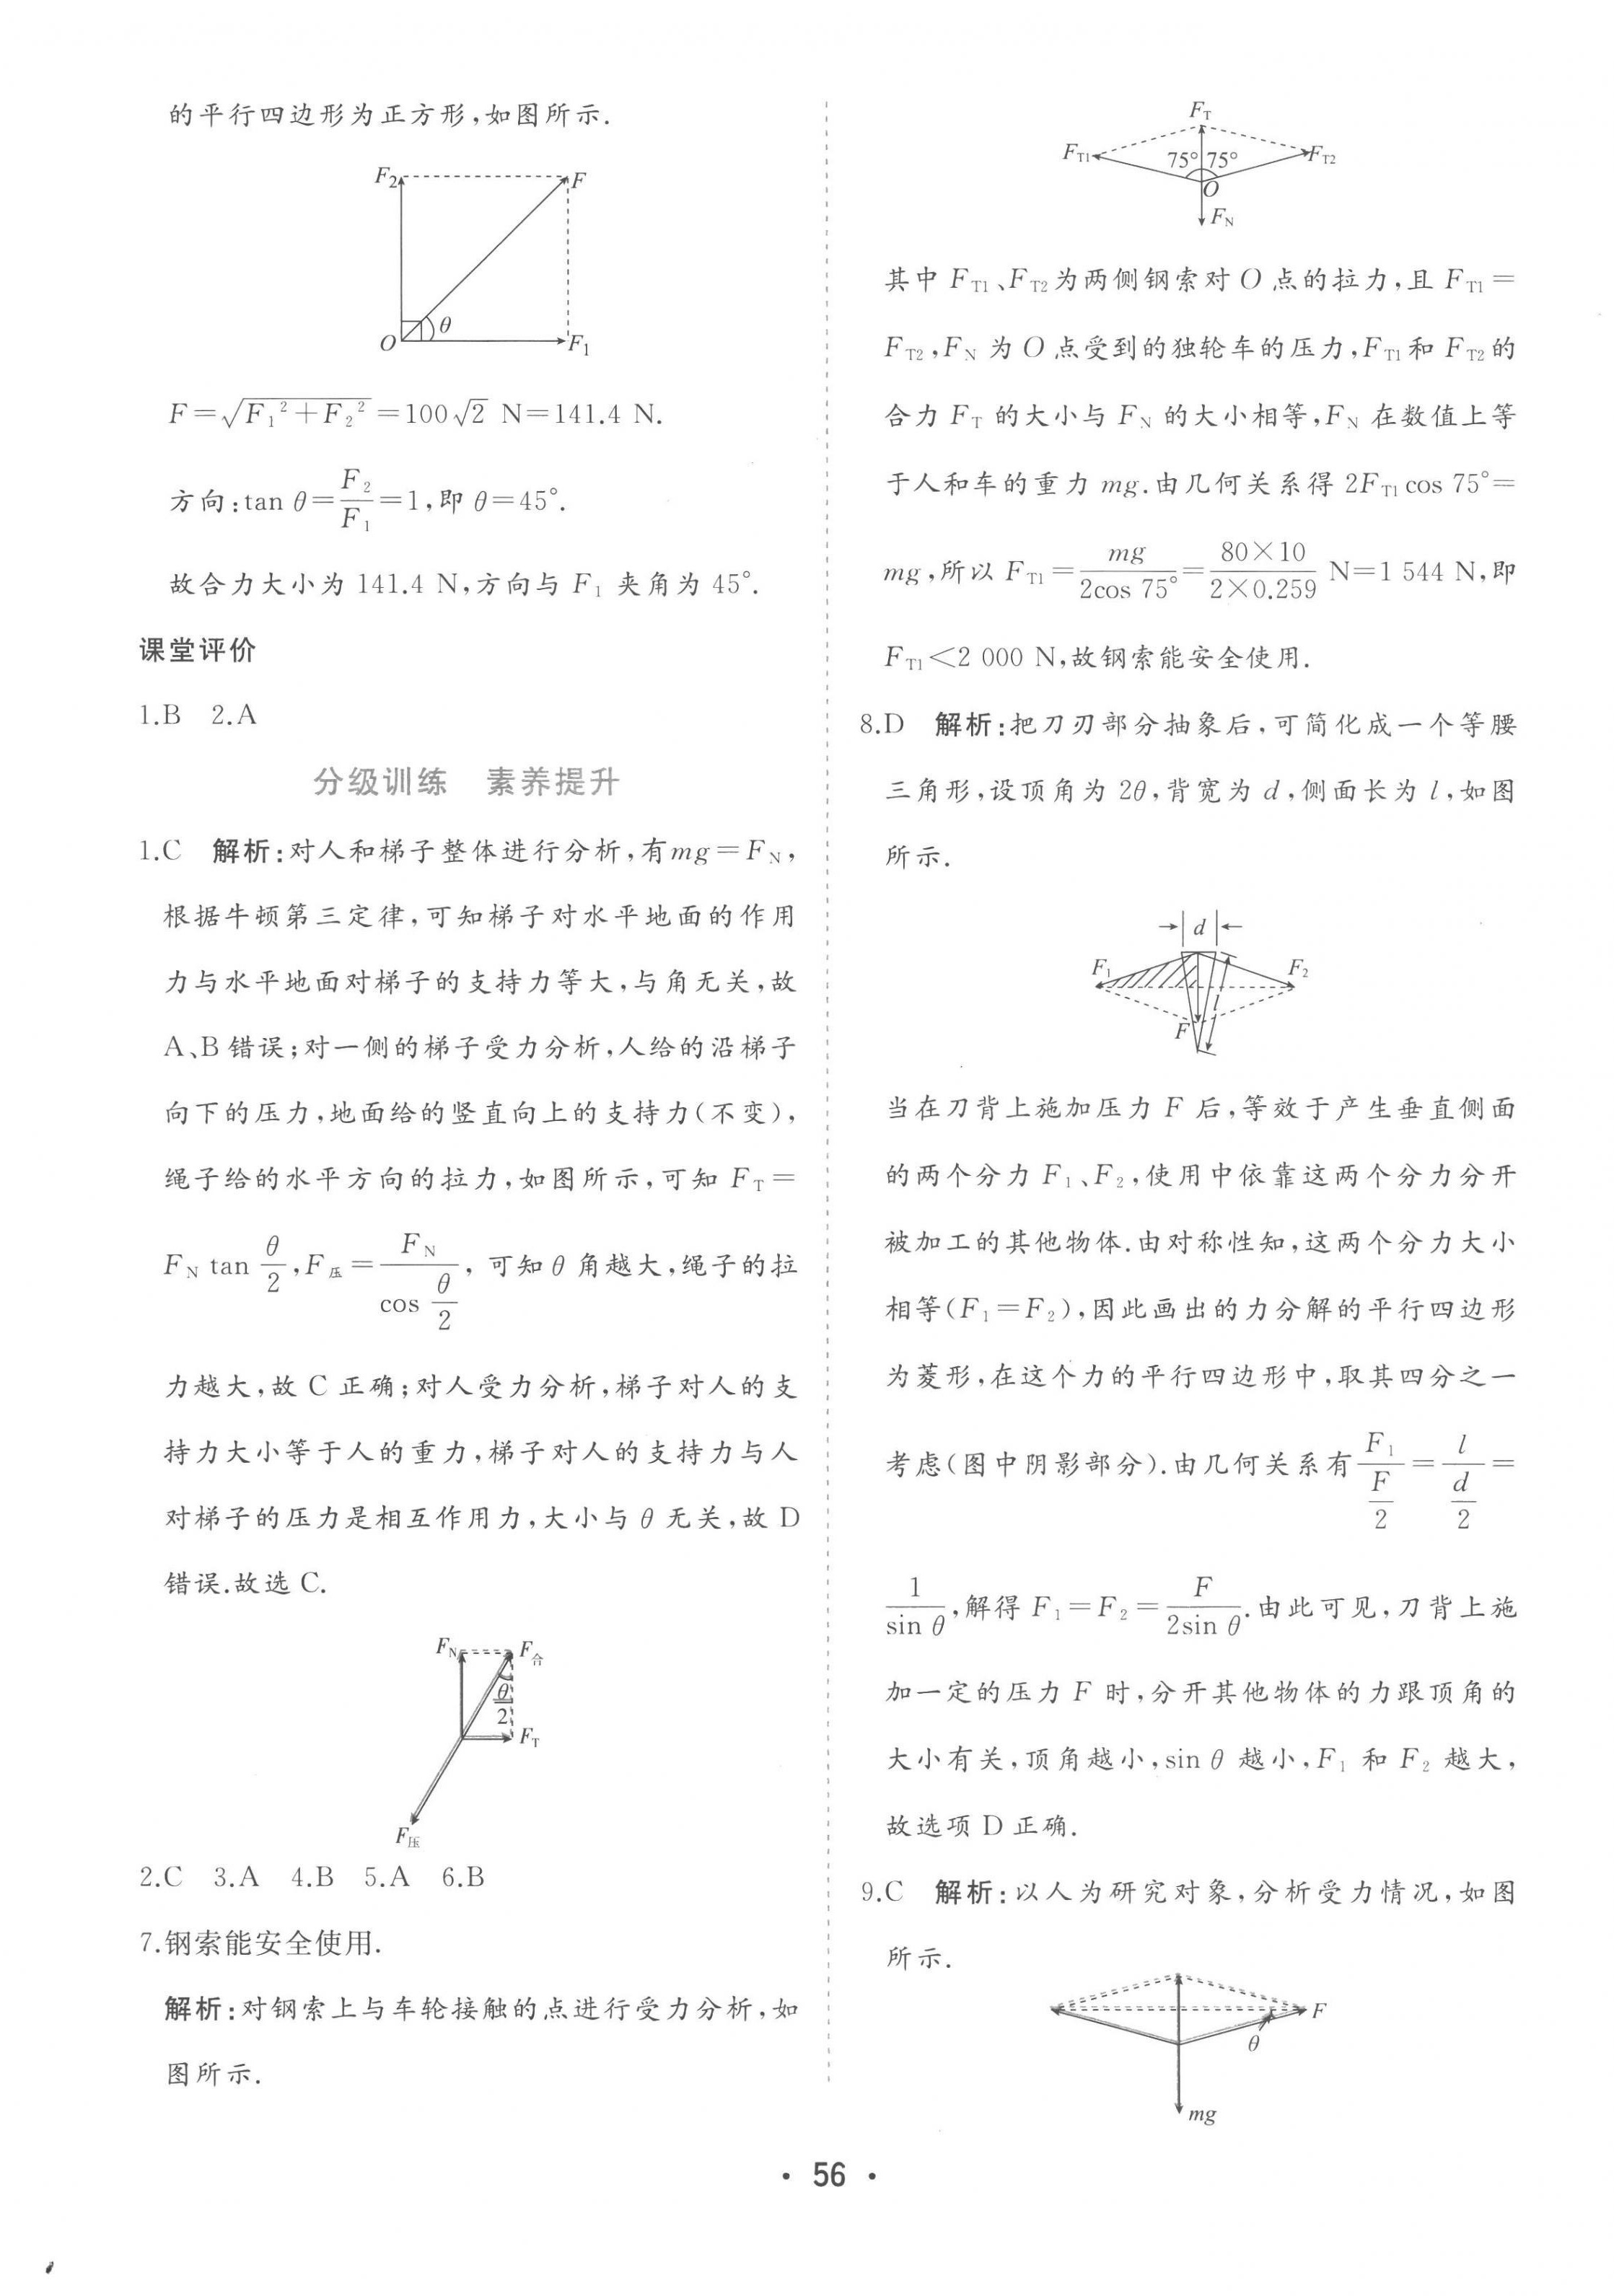 的平行四边形为正方形,如图所示.
F₂
F
θ
O
F₁
F=√(F₁²+F₂²)=100√2 N=141.4 N.
方向:tan θ=F₂/F₁=1,即 θ=45°.
故合力大小为 141.4 N,方向与 F₁ 夹角为 45°.
课堂评价
1.B 2.A
分级训练 素养提升
1.C 解析:对人和梯子整体进行分析,有mg=F_N,
根据牛顿第三定律,可知梯子对水平地面的作用
力与水平地面对梯子的支持力等大,与角无关,故
A、B 错误;对一侧的梯子受力分析,人给的沿梯子
向下的压力,地面给的竖直向上的支持力(不变),
绳子给的水平方向的拉力,如图所示,可知 F_T=
F_N tan θ/2,F压=F_N/(cos θ/2),可知 θ 角越大,绳子的拉
力越大,故 C 正确;对人受力分析,梯子对人的支
持力大小等于人的重力,梯子对人的支持力与人
对梯子的压力是相互作用力,大小与 θ 无关,故 D
错误.故选 C.
F_N
F合
θ/2
F_T
F压
2.C 3.A 4.B 5.A 6.B
7.钢索能安全使用.
解析:对钢索上与车轮接触的点进行受力分析,如
图所示.
F_T
F_T1
75° 75°
F_T2
O
F_N
其中 F_T1、F_T2为两侧钢索对 O 点的拉力,且 F_T1=
F_T2,F_N 为 O 点受到的独轮车的压力,F_T1和 F_T2的
合力 F_T 的大小与 F_N 的大小相等,F_N 在数值上等
于人和车的重力 mg.由几何关系得 2F_T1 cos 75°=
mg,所以 F_T1=mg/(2cos 75°)=(80×10)/(2×0.259) N=1 544 N,即
F_T1<2 000 N,故钢索能安全使用.
8.D 解析:把刀刃部分抽象后,可简化成一个等腰
三角形,设顶角为 2θ,背宽为 d,侧面长为 l,如图
所示.
d
F₁
F₂
l
F
当在刀背上施加压力 F 后,等效于产生垂直侧面
的两个分力 F₁、F₂,使用中依靠这两个分力分开
被加工的其他物体.由对称性知,这两个分力大小
相等(F₁=F₂),因此画出的力分解的平行四边形
为菱形,在这个力的平行四边形中,取其四分之一
考虑(图中阴影部分).由几何关系有F₁/(F/2)=l/(d/2)=
1/sin θ,解得 F₁=F₂=F/(2sin θ).由此可见,刀背上施
加一定的压力 F 时,分开其他物体的力跟顶角的
大小有关,顶角越小,sin θ 越小,F₁ 和 F₂ 越大,
故选项 D 正确.
9.C 解析:以人为研究对象,分析受力情况,如图
所示.
F
θ
mg
• 56 •